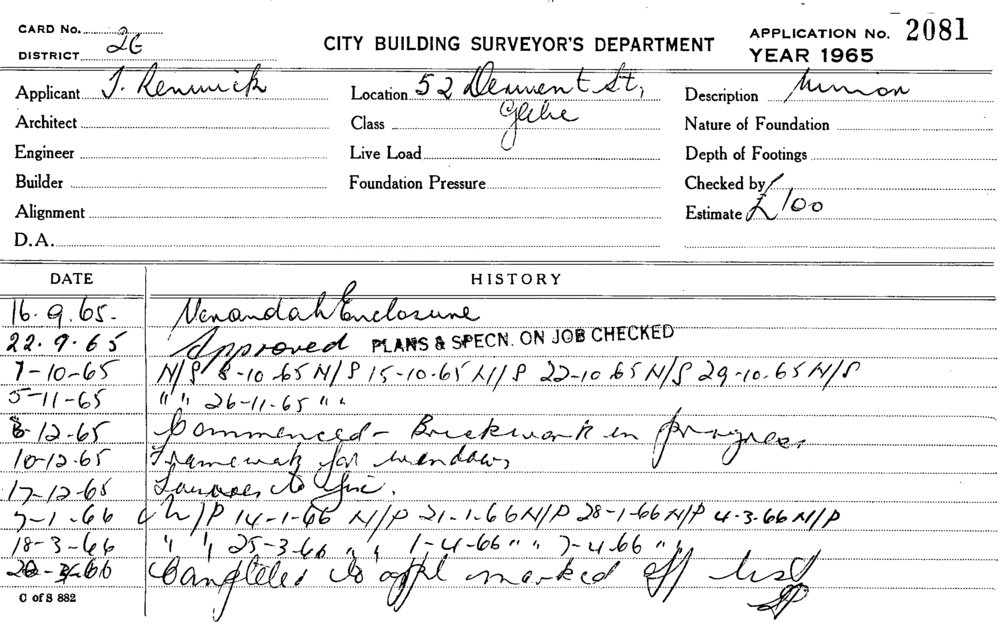 CARD No.
DISTRICT 2G
CITY BUILDING SURVEYOR'S DEPARTMENT
APPLICATION No. 2081
YEAR 1965
Applicant J. Renwick
Location 52 Derwent St,
Glebe
Description Minor
Architect
Class
Nature of Foundation
Engineer
Live Load
Depth of Footings
Builder
Foundation Pressure
Checked by
Alignment
Estimate £100
D.A.
DATE HISTORY
16.9.65. Verandah Enclosure
22.9.65 Approved PLANS & SPECN. ON JOB CHECKED
1-10-65 N/S 8-10.65 N/S 15-10-65 N/S 22-10 65 N/S 29-10.65 N/S
5-11-65 " " 26-11-65 " "
8-12-65 Commenced - Brickwork in progress
10-12.65 Framework for windows
17-12-65 Louvres to fix.
7-1-66 N/P 14-1-66 N/P 21-1-66 N/P 28-1-66 N/P 4-3-66 N/P
18-3-66 " " 25-3-66 " " 1-4-66 " " 7-4-66 " "
Completed to appl marked off list
C of S 882